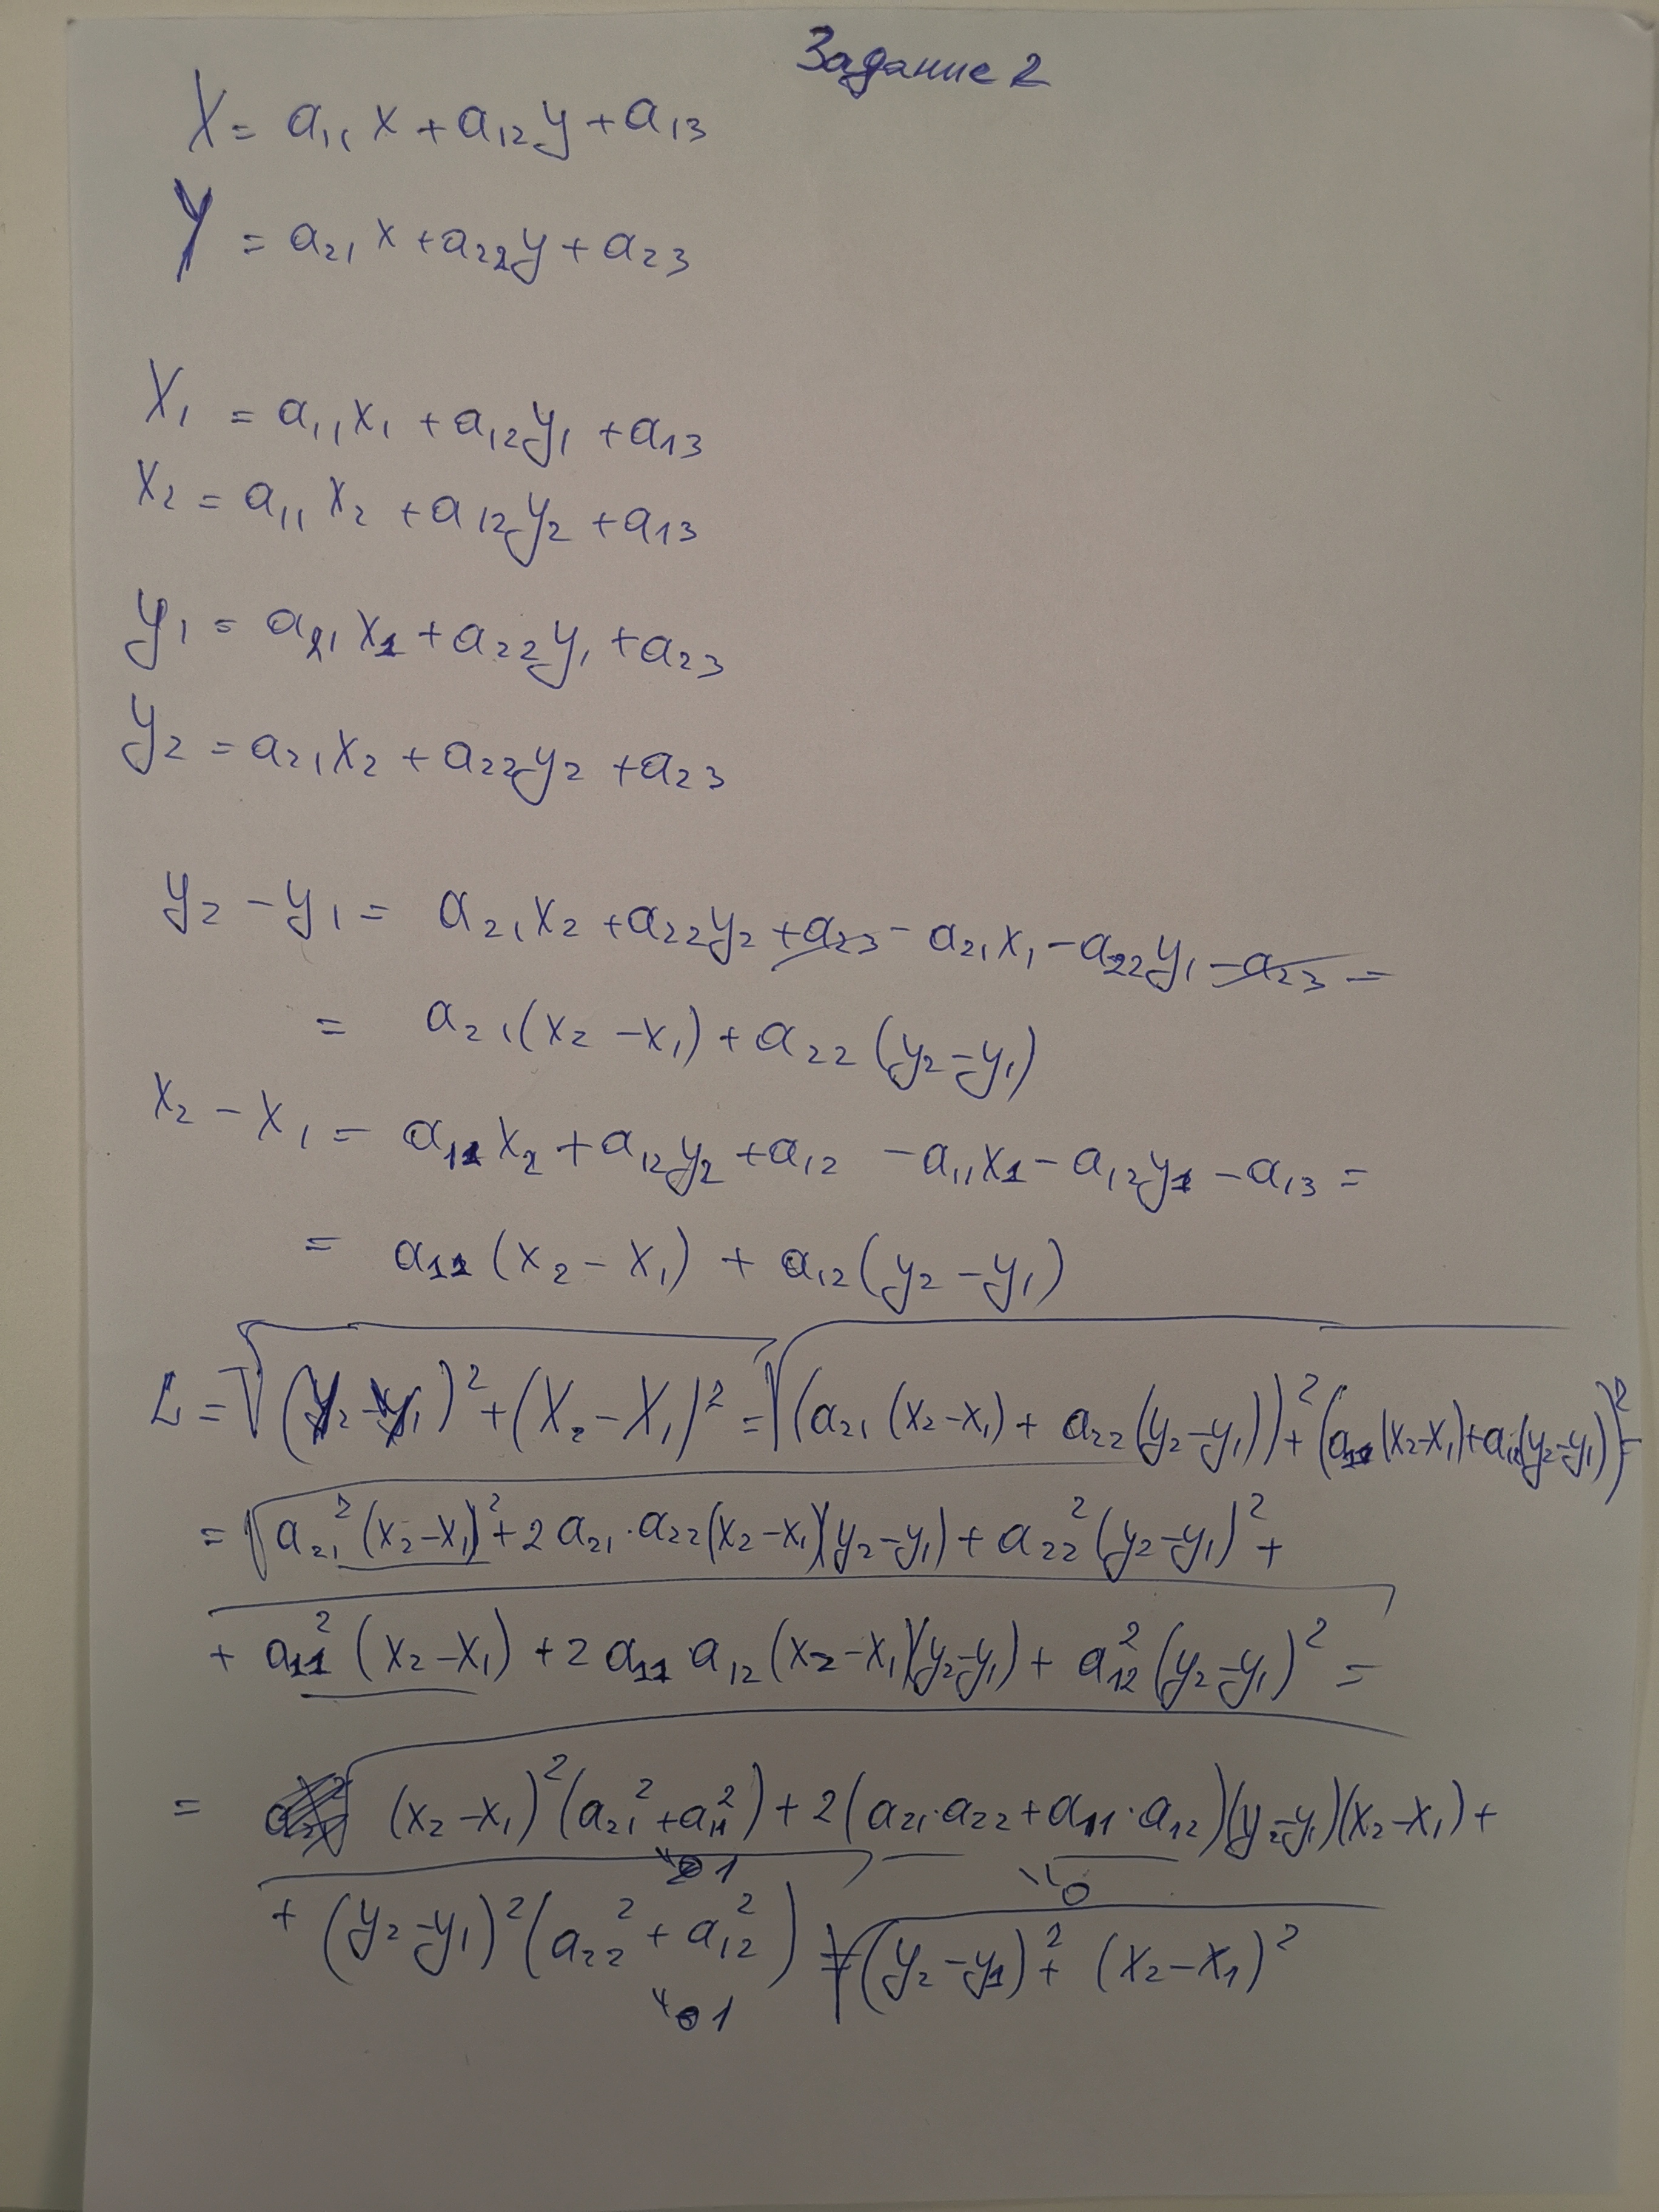 Задание 2
X = a₁₁x + a₁₂y + a₁₃
Y = a₂₁x + a₂₂y + a₂₃
X₁ = a₁₁x₁ + a₁₂y₁ + a₁₃
X₂ = a₁₁x₂ + a₁₂y₂ + a₁₃
y₁ = a₂₁x₁ + a₂₂y₁ + a₂₃
y₂ = a₂₁x₂ + a₂₂y₂ + a₂₃
y₂ - y₁ = a₂₁x₂ + a₂₂y₂ + a₂₃ - a₂₁x₁ - a₂₂y₁ - a₂₃ =
= a₂₁(x₂ - x₁) + a₂₂(y₂ - y₁)
x₂ - x₁ = a₁₁x₂ + a₁₂y₂ + a₁₂ - a₁₁x₁ - a₁₂y₁ - a₁₃ =
= a₁₁(x₂ - x₁) + a₁₂(y₂ - y₁)
L = √((y₂ - y₁)² + (X₂ - X₁)²) = √((a₂₁(x₂ - x₁) + a₂₂(y₂ - y₁))² + (a₁₁(x₂ - x₁) + a₁₂(y₂ - y₁))²) =
= √(a₂₁²(x₂ - x₁)² + 2a₂₁·a₂₂(x₂ - x₁)(y₂ - y₁) + a₂₂²(y₂ - y₁)² +
+ a₁₁²(x₂ - x₁) + 2a₁₁·a₁₂(x₂ - x₁)(y₂ - y₁) + a₁₂²(y₂ - y₁)² =
= √((x₂ - x₁)²(a₂₁² + a₁₁²) + 2(a₂₁·a₂₂ + a₁₁·a₁₂)(y₂ - y₁)(x₂ - x₁) +
1 0
+ (y₂ - y₁)²(a₂₂² + a₁₂²) = √((y₂ - y₁)² + (x₂ - x₁)²
1